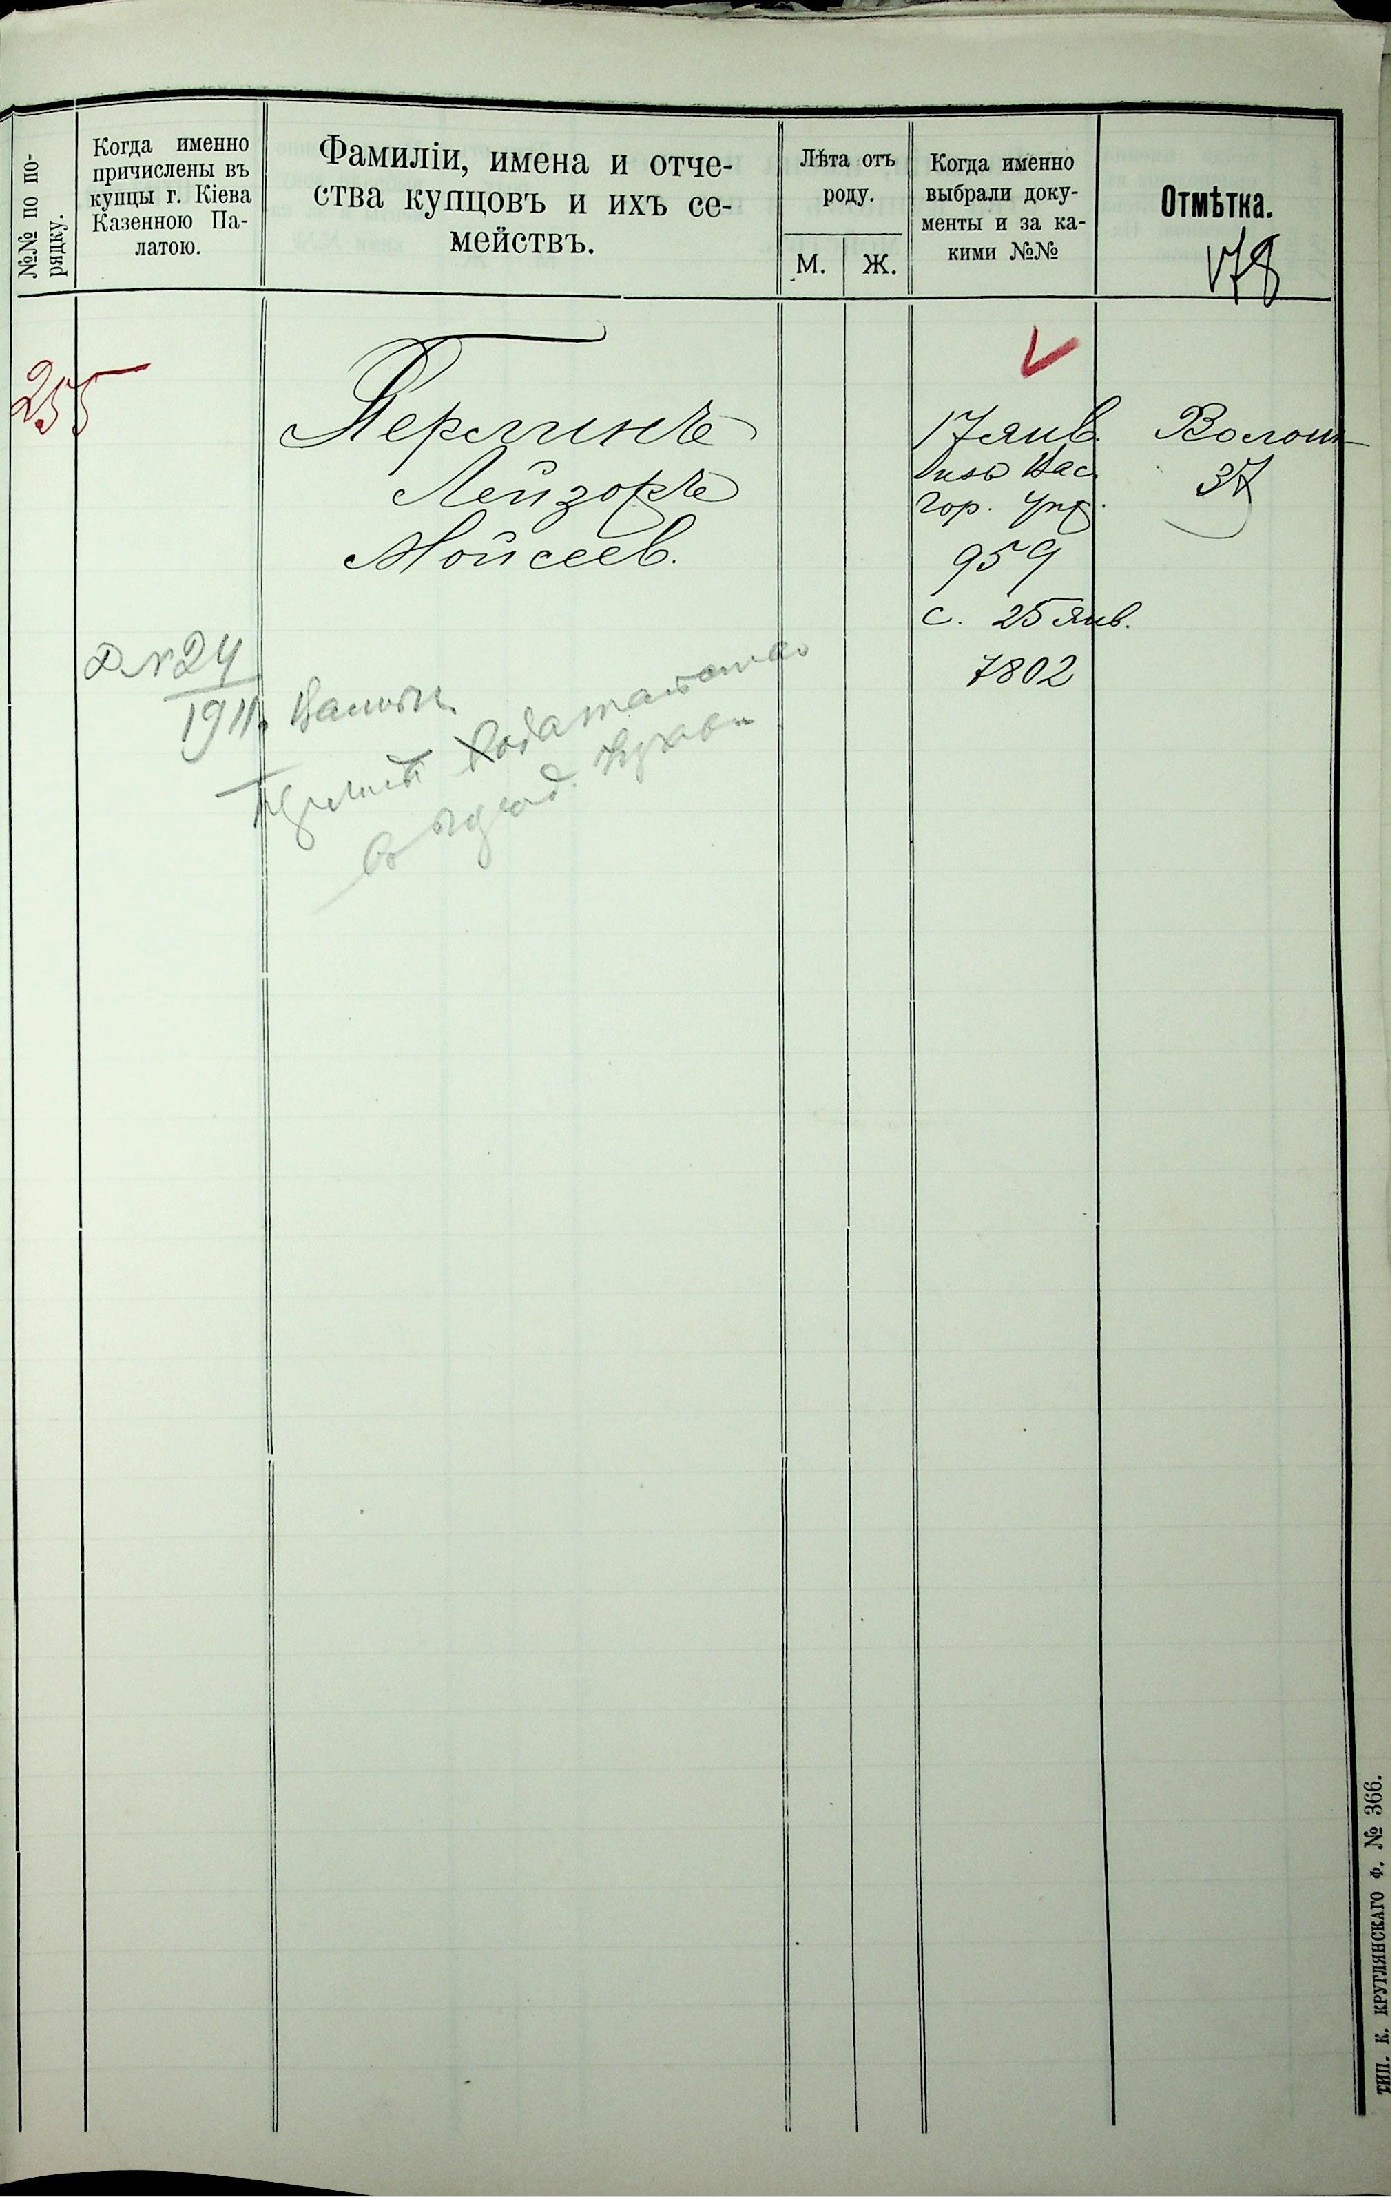 №№ по по-
рядку.
Когда именно
причислены въ
купцы г. Кіева
Казенною Па-
латою.
Фамиліи, имена и отче-
ства купцовъ и ихъ се-
мействъ.
Лѣта отъ
роду.
М. Ж.
Когда именно
выбрали доку-
менты и за ка-
кими №№
Отмѣтка.
178
255
Перлинъ
Лейзоръ
Мойсеев.
17 янв.
гор. упр.
959
с. 25 янв.
7802
37
№ 24
1911
ТИП. К. КРУГЛЯНСКАГО Ф. № 366.